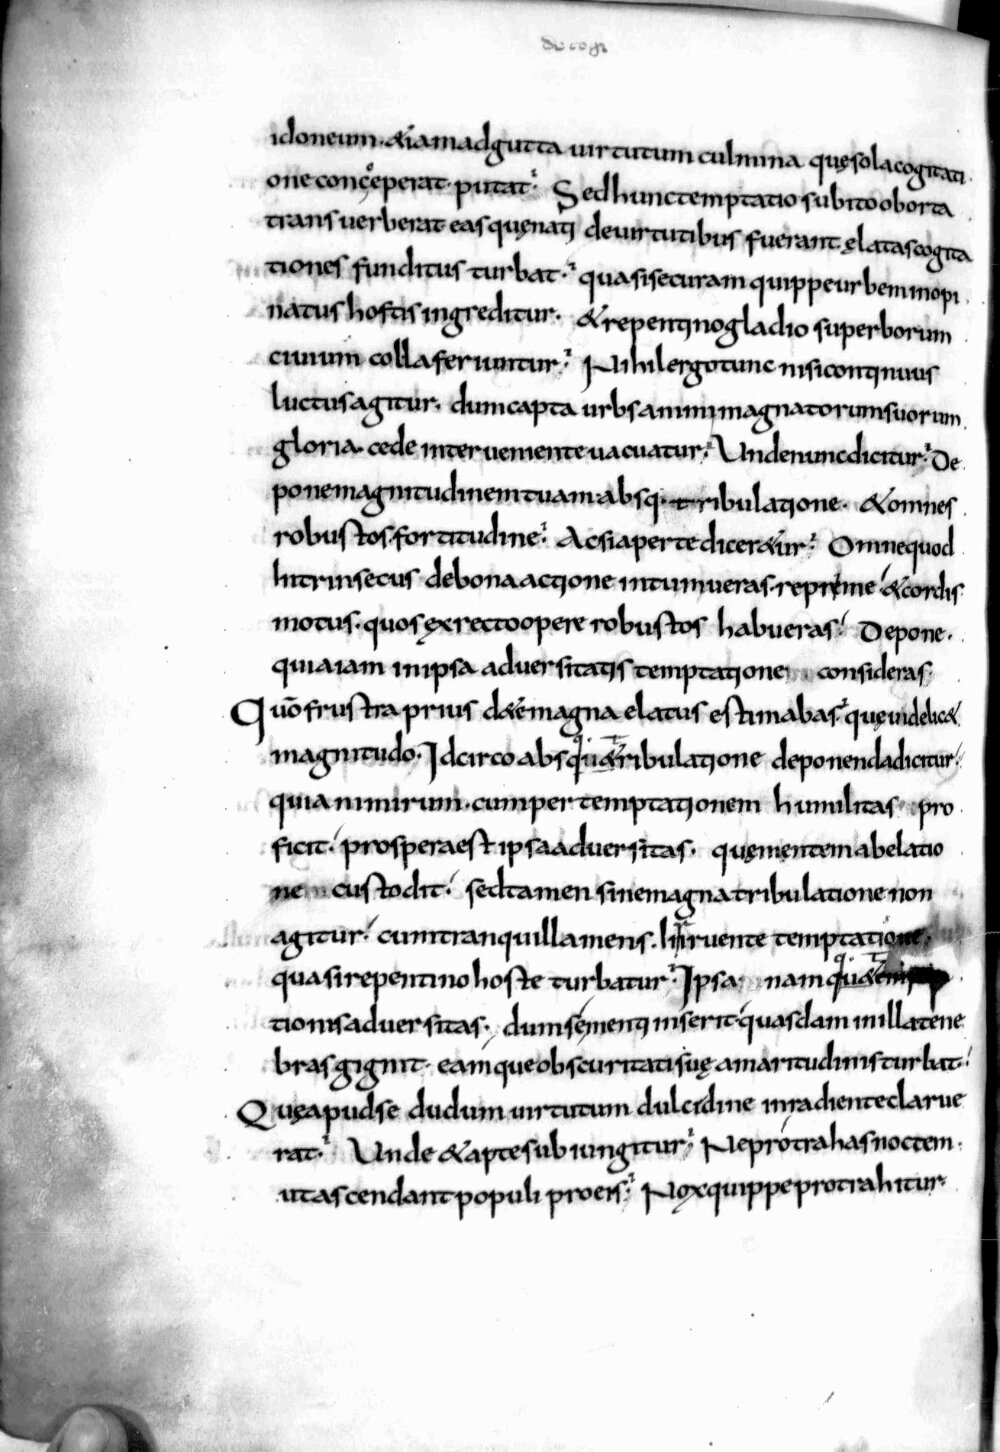 idoneum. &iamadgutta uirtutum culmina quęsolacogitati
one conceperat. putat. Sedhunctemptatio subitooborta
transuerberat eas quęnatę deuirtutibus fuerant. ęlatascogita
tiones funditus turbat. quasisecuram quippeurbeminopi
natus hostis ingreditur. &repentinogladio superborum
ciuium colla feriuntur. Nihilergotunc nisicontinuus
luctusagitur. dumcapta urbsanimi magnatorumsuorum
gloria cede interuenienteuacuatur. Undenuncdicitur. De
ponemagnitudinemtuam absq. tribulatione. &omnes
robustos fortitudine. Acsiapertedicer&ur. Omnequod
Intrinsecus debonaactione intumueras. reprime &cordis
motus. quos ęxrectoopere robustos habueras. Depone.
quiaiam inipsa aduersitatis temptatione consideras
Quō frustra prius de te magna elatus estimabas. quęuidelic&
magnitudo. Idcirco absque tribulatione deponendadicitur.
quia nimirum. cumper temptationem humilitas pro
ficit. prosperaest ipsaaduersitas. quęmentemabelatio
ne custodit. sedtamen sinemagna tribulatione non
agitur. cumtranquillamens. Inruente temptatione.
quasi repentino hoste turbatur. Ipsa nam
tionis aduersitas. dumsementi inserit. quasdam inillatene
bras gignit. eamque obscuritatisuę amaritudinisturbat.
Quęapudse dudum uirtutum dulcidine inradienteclarue
rat. Unde &aptesubiungitur. Neprotrahasnoctem.
utascendant populi proeis. Noxquippeprotrahitur